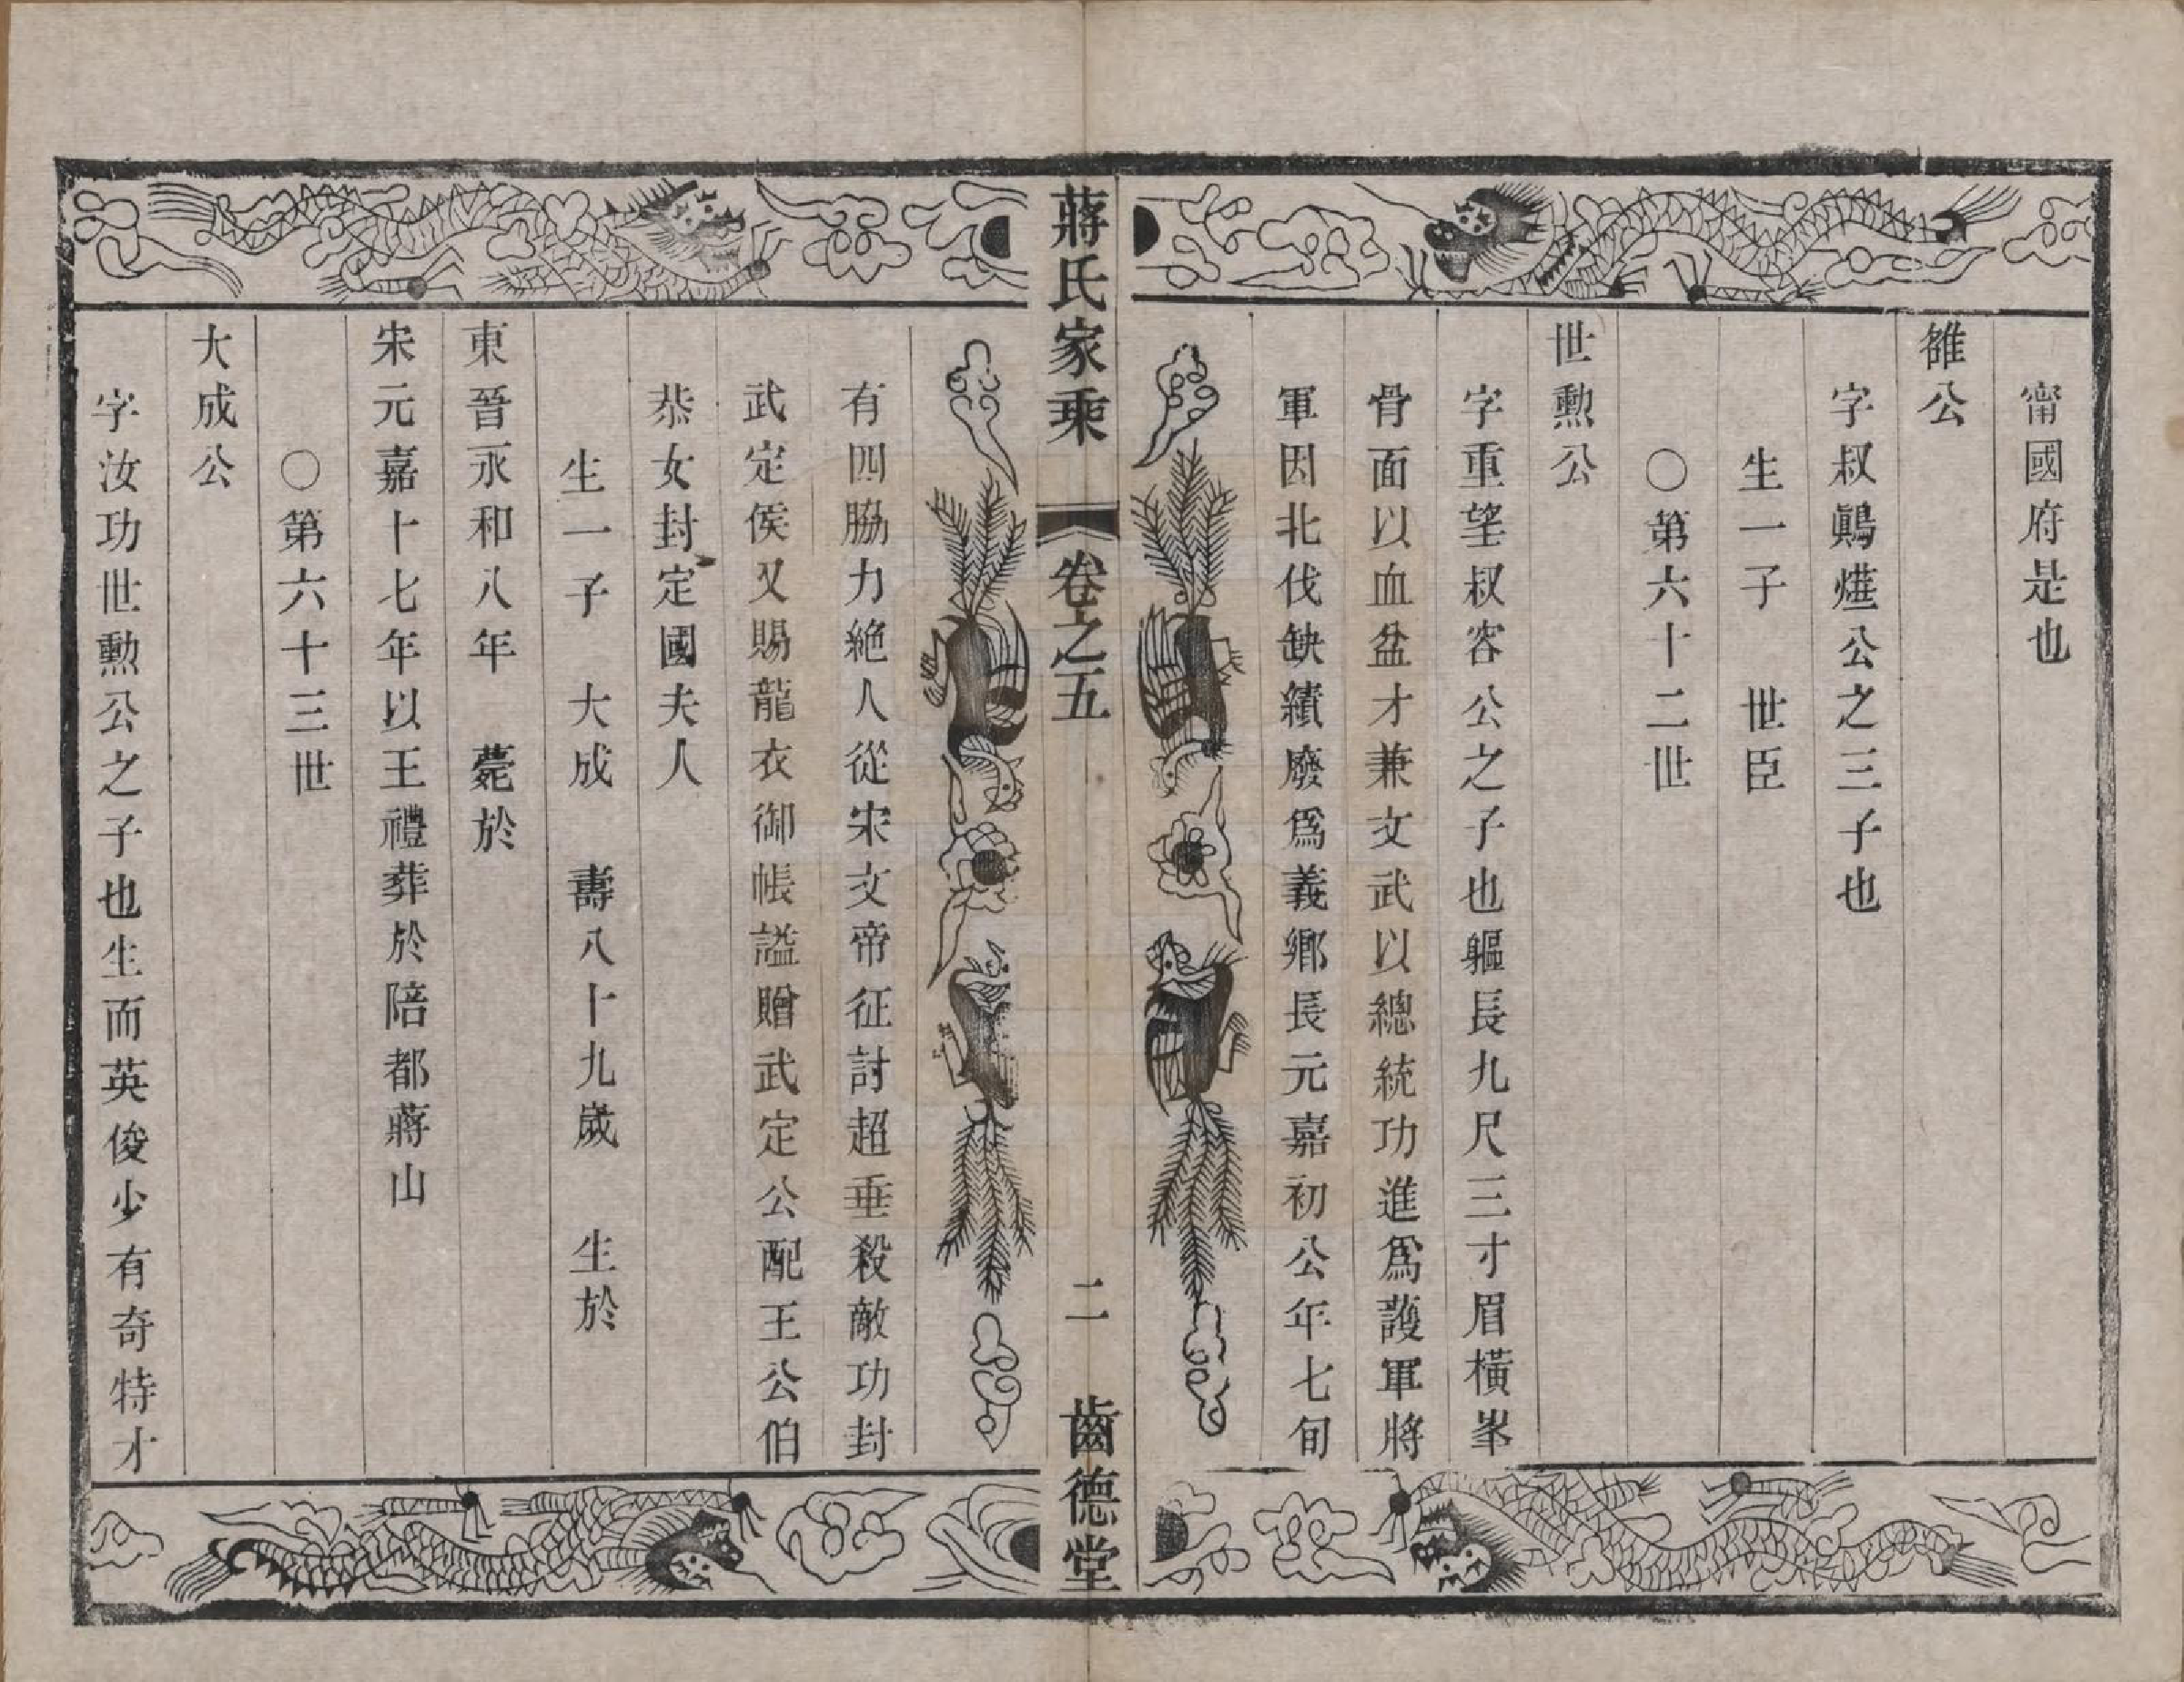 甯國府是也
雒公
字叔鷏爀公之三子也
生一子　世臣
○第六十二世
世勲公
字重望叔容公之子也軀長九尺三寸眉橫峯
骨面以血盆才兼文武以總統功進爲護軍將
軍因北伐缺續廢爲義鄕長元嘉初公年七旬
蔣氏家乘　卷之五　二　齒德堂
有四脇力絶人從宋文帝征討超垂殺敵功封
武定侯又賜龍衣御帳謚贈武定公配王公伯
恭女封定國夫人
生一子　大成　壽八十九歲　生於
東晉永和八年　薨於
宋元嘉十七年以王禮葬於陪都蔣山
○第六十三世
大成公
字汝功世勲公之子也生而英俊少有奇特才